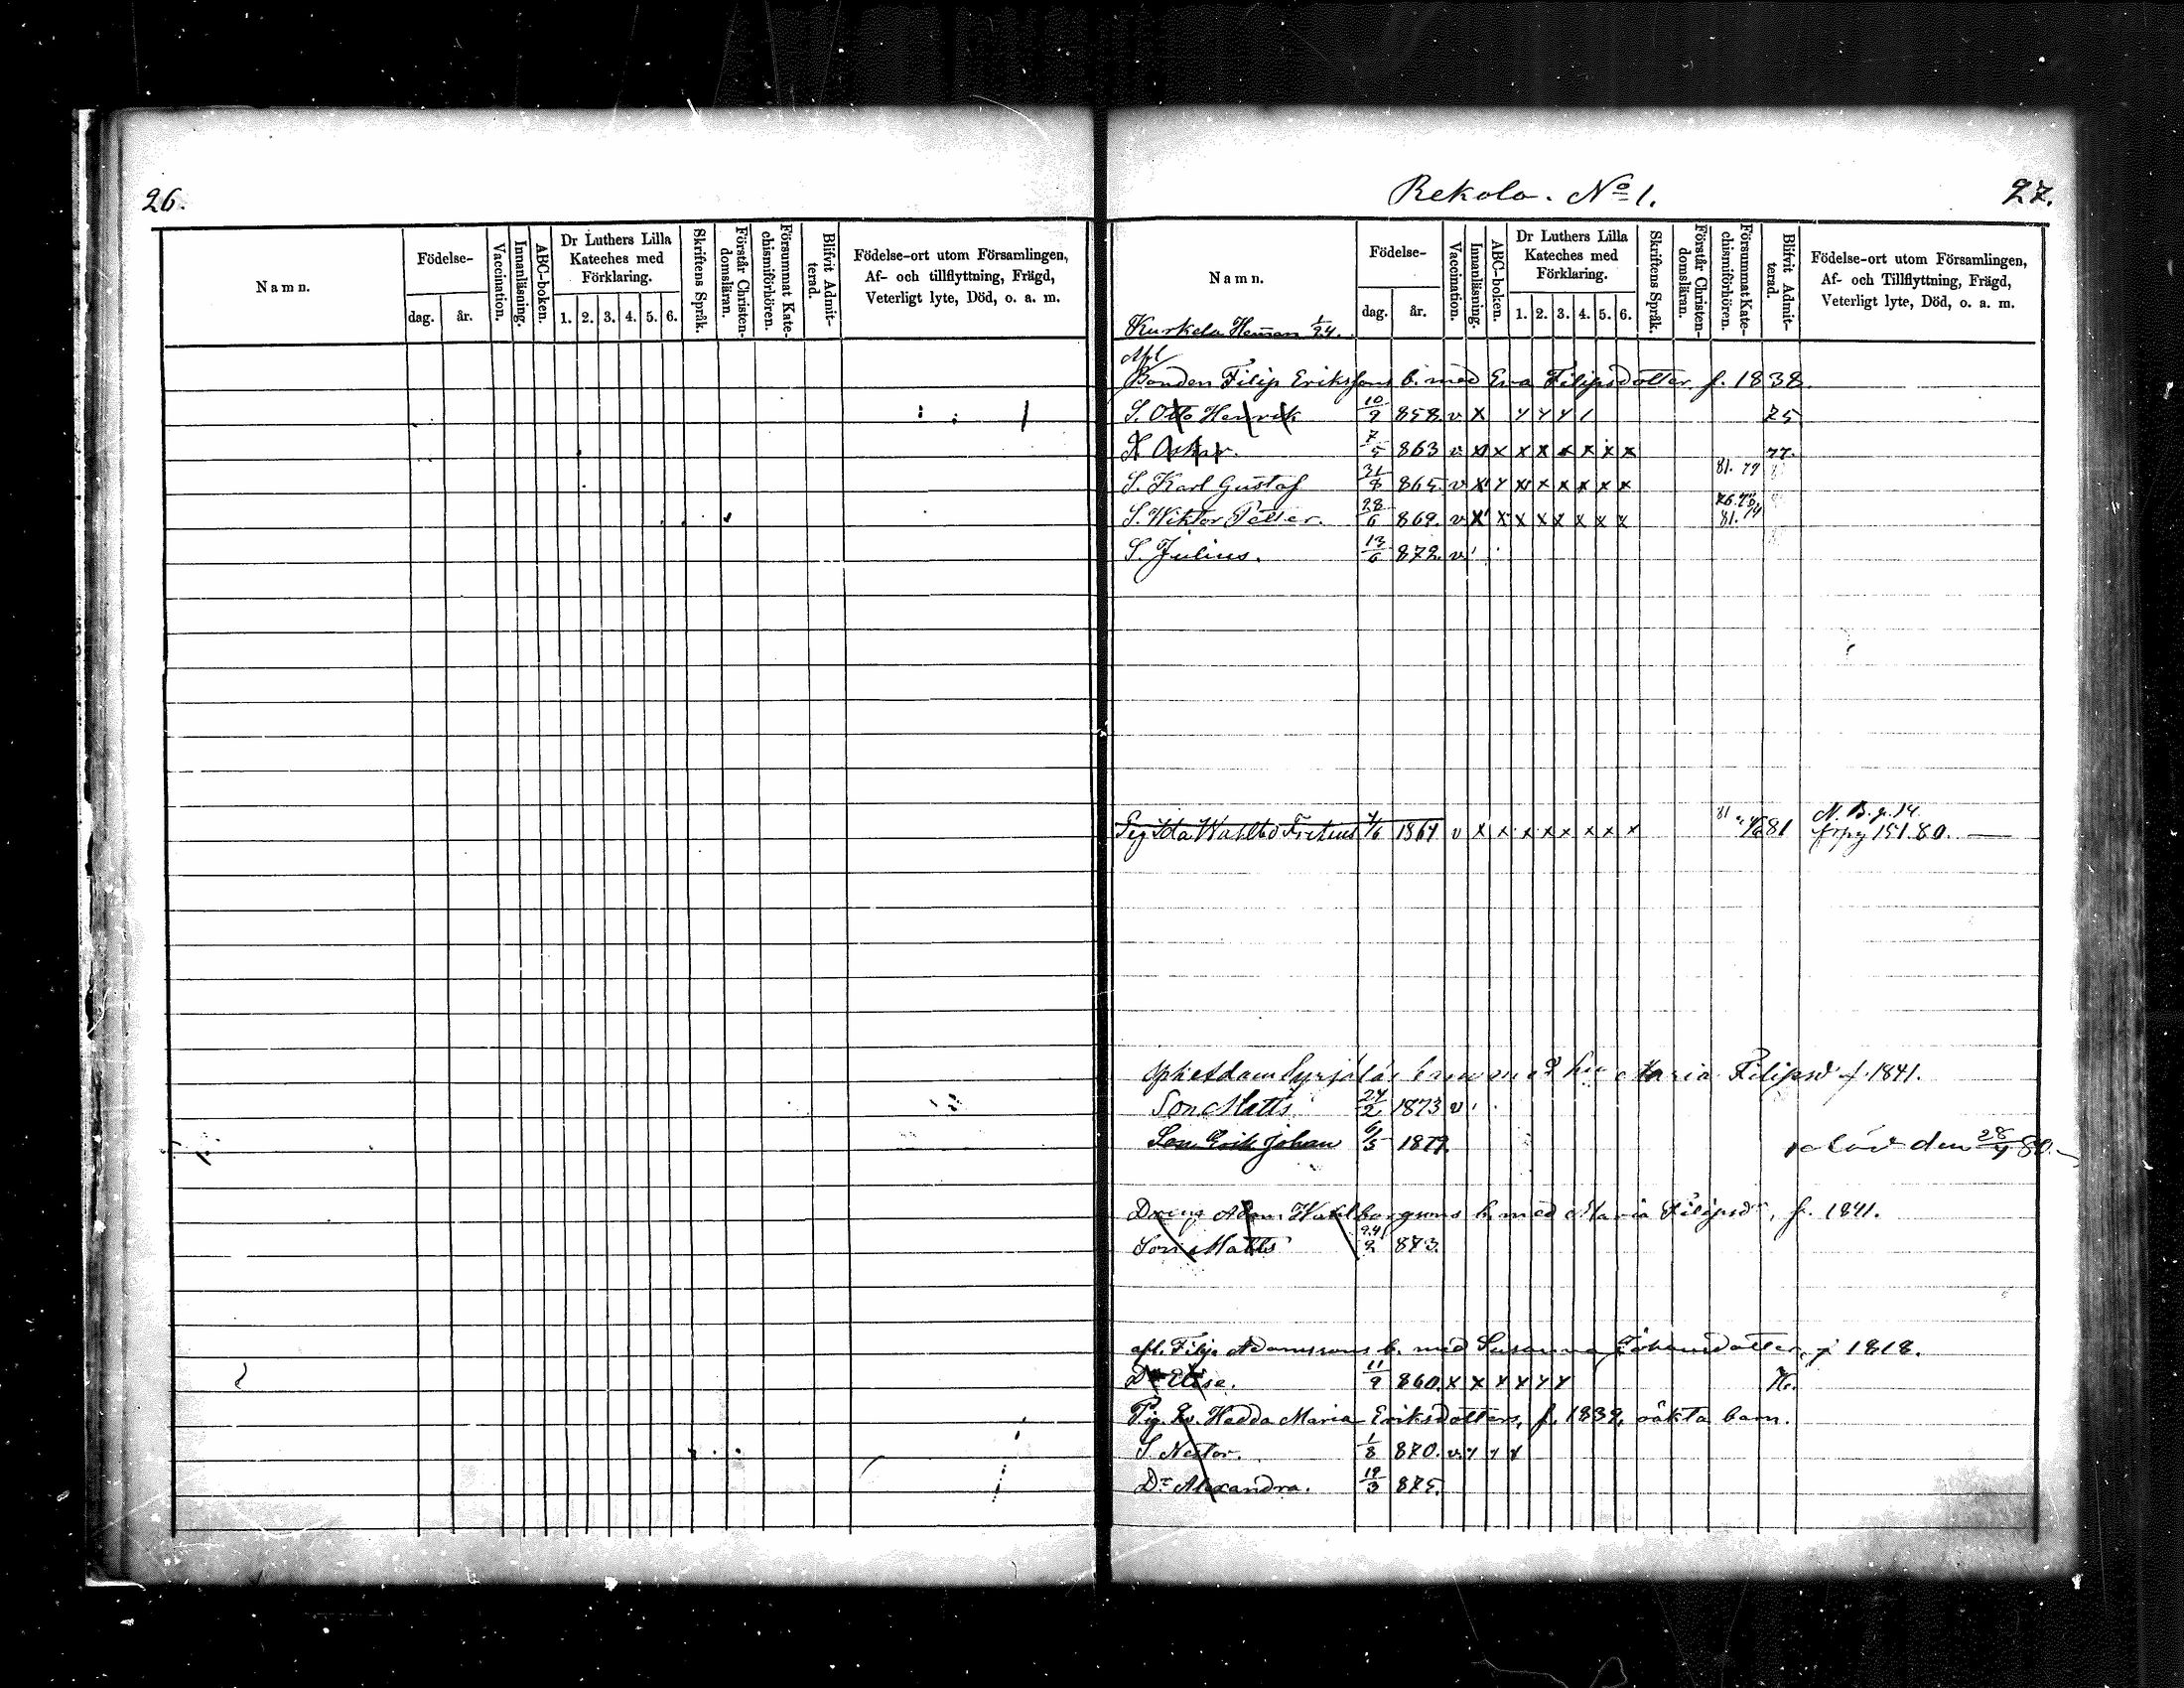 26.
Namn.
Födelse-
dag. år.
Vaccination.
Innanläsning.
ABC-boken.
Dr Luthers Lilla
Kateches med
Förklaring.
1. 2. 3. 4. 5. 6.
Skriftens Språk.
Förstår Christen-
domsläran.
Försummat Kate-
chismiförhören.
Blifvit Admit-
terad.
Födelse-ort utom Församlingen,
Af- och tillflyttning, Frägd,
Veterligt lyte, Död, o. a. m.
Rekola. No 1.
27.
Namn.
Födelse-
dag. år.
Vaccination.
Innanläsning.
ABC-boken.
Dr Luthers Lilla
Kateches med
Förklaring.
1. 2. 3. 4. 5. 6.
Skriftens Språk.
Förstår Christen-
domsläran.
Försummat Kate-
chismiförhören.
Blifvit Admit-
terad.
Födelse-ort utom Församlingen,
Af- och Tillflyttning, Frägd,
Veterligt lyte, Död, o. a. m.
Kurkela Heman 1/24.
Afl
Bonden Filip Erikssons b. med Eva Filipsdotter f. 1838.
S. Otto Henrik 10/9 858. v x 75
S. Oskar. 7/5 863 v x x x x x x x x 77.
S. Karl Gustaf 865. v x x x x x x x 81. 79
S. Wiktor Petter. 28/6 869. v x x x x x x x x 81.
S. Julius. 13/6 872. v
Pig Ida Wahlbo 1/6 1864 v x x x x x x x x 81 81 N. B. p. 14.
151. 80.
barn med hu Maria Filipsd f. 1841.
Son Matts 24/2 1873 v
Son Erik Johan 6/5 1879. död den 28/4 80.
Dreng Adam Wahlbergsons b. med Maria Filipsdr, f. 1841.
Son Matts 24/2 873.
afl. Filip Adamssons b. med Susanna Johansdotter, f 1818.
Dr Elise. 11/9 860. x x x x x x 76.
Pig. Ev. Hedda Maria Eriksdotters, f. 1839, oäkta barn.
S. Nestor. 1/8 870. v
Dr Alexandra. 19/3 875.